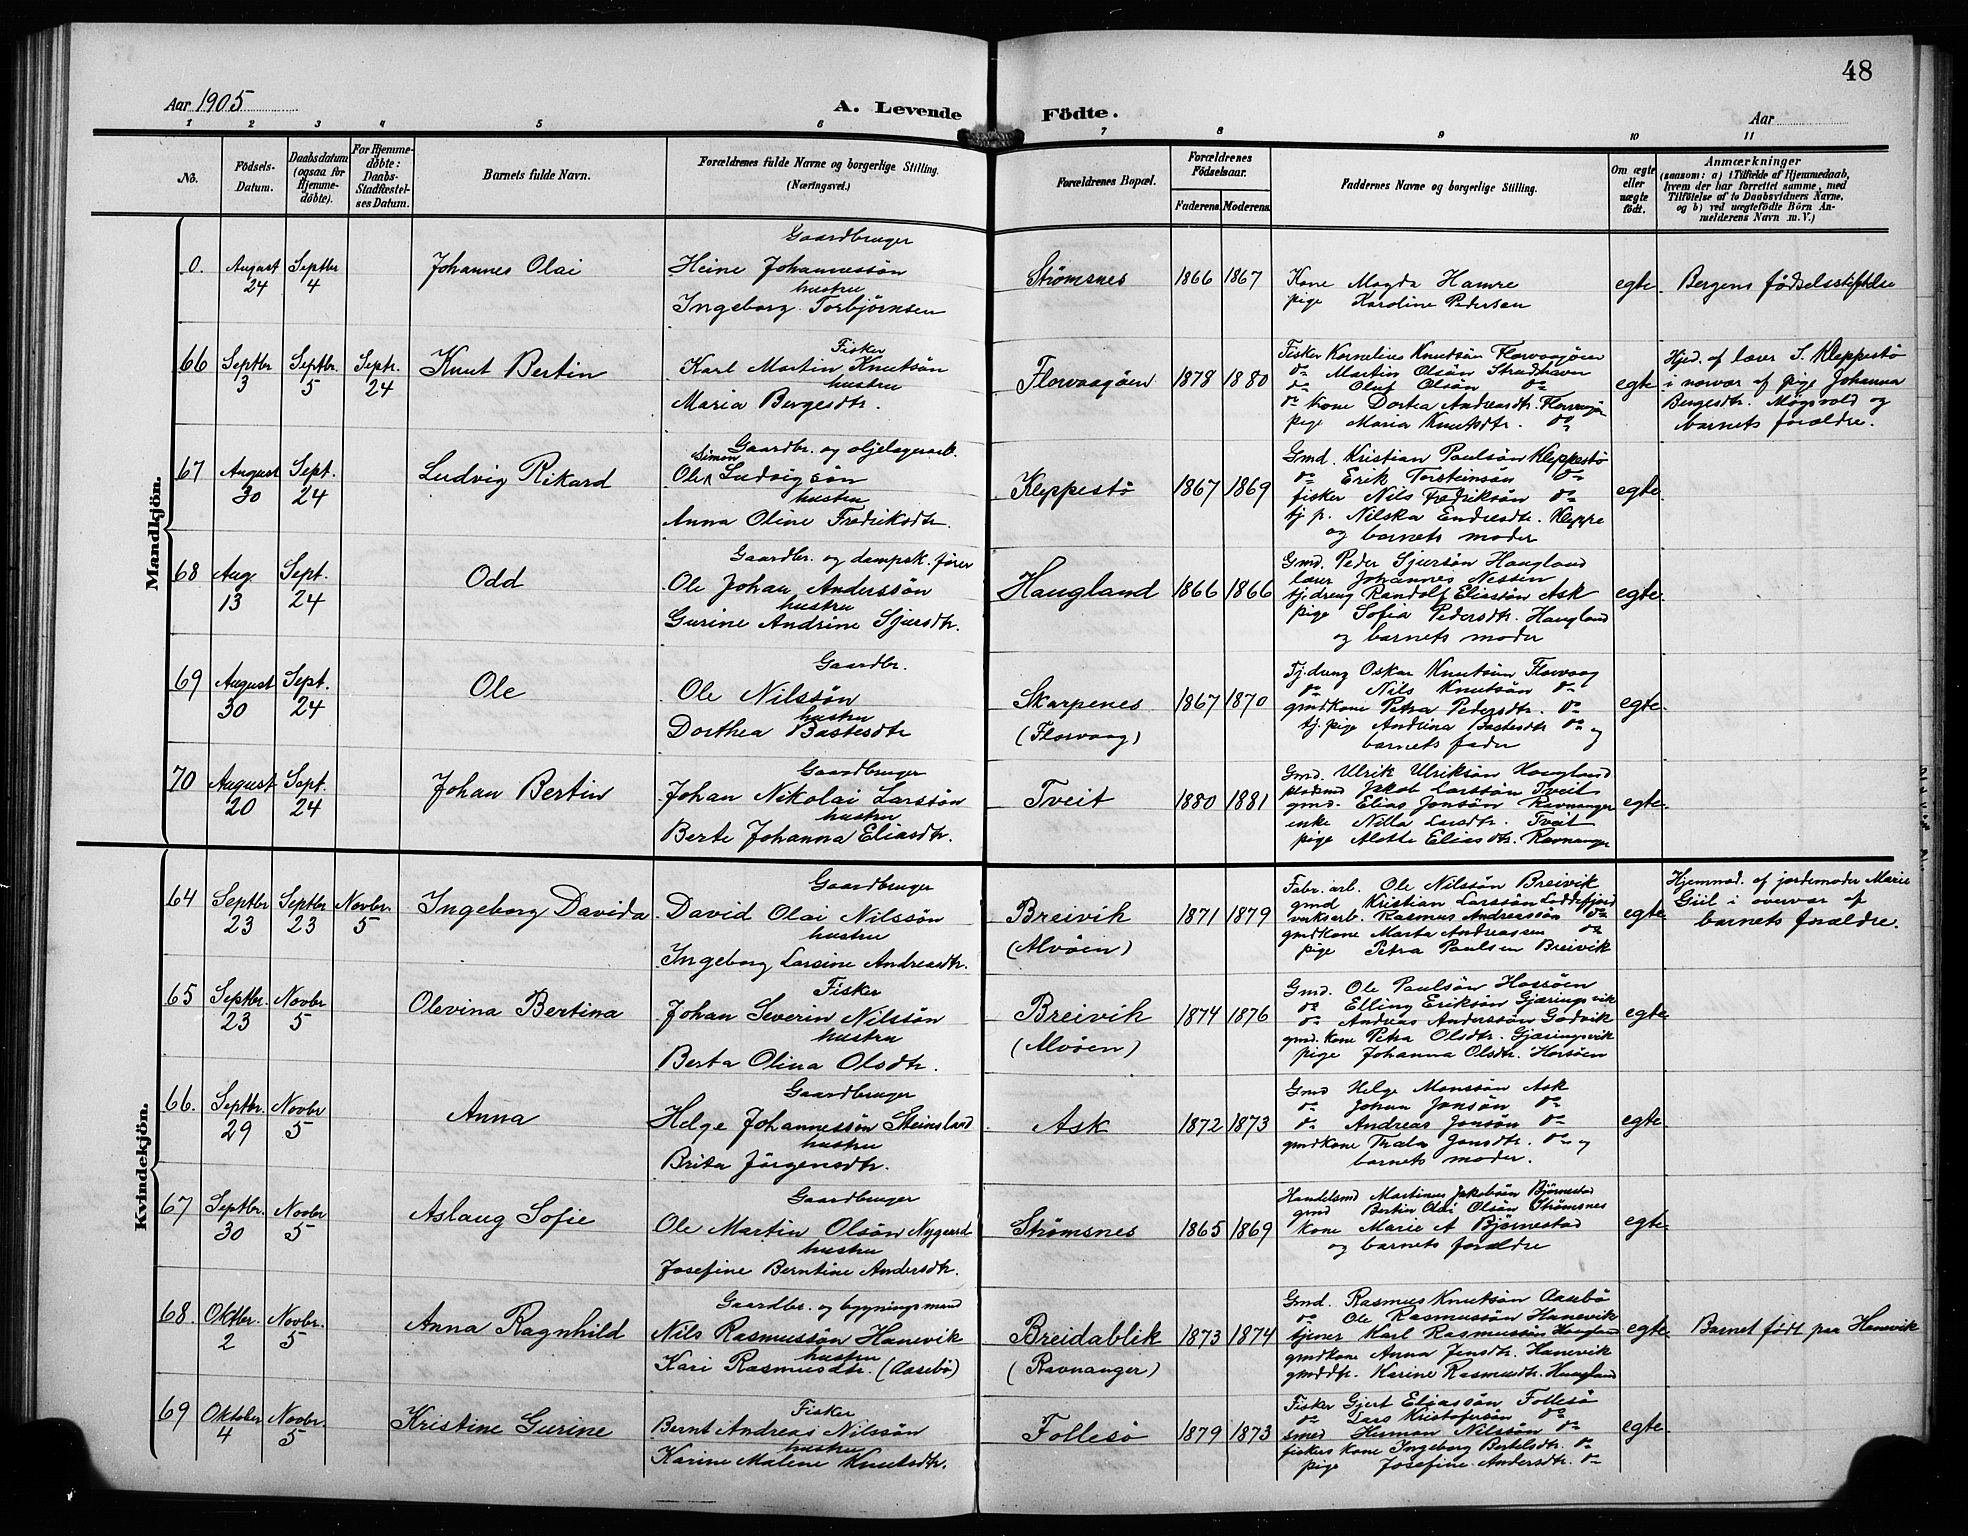 48
Aar 1905
A. Levende Födte.
Aar
1 2 3 4 5 6 7 8 9 10 11
No.
Födsels-Datum.
Daabsdatum (ogsaa for Hjemme-döbte).
For Hjemme-döbte: Daabs-Stadfæstel-ses Datum.
Barnets fulde Navn.
Forældrenes fulde Navne og borgerlige Stilling.
(Næringsvei.)
Forældrenes Bopæl.
Forældrenes Födselsaar.
Faderens. Moderens.
Faddernes Navne og borgerlige Stilling.
Om ægte eller uægte födt.
Anmærkninger
(saasom: a) i Tilfælde af Hjemmedaab,
hvem der har forrettet samme, med
Tilföielse af to Daabsvidners Navne,
og b) ved uægtefödte Börn An-
melderens Navn m. V.)
Mandkjön.
0. August 24 Septbr 4
Johannes Olai
Gaardbruger
Heine Johannessøn
hustru
Ingeborg Torbjørnsen
Strømsnes 1866 1867
Kone Magda Hamre
pige Karoline Pedersen
egte. Bergens fødselsstiftelse
66 Septbr 3 Septbr. 5 Septr. 24
Knut Bertin
Fisker
Karl Martin Knutsøn
hustru
Maria Bergesdtr.
Florvaagøen 1878 1880
Fisker Kornelius Knutsøn Florvaagøen
do Martin Olsøn Strudshavn
do Oluf Olsøn do
do Kone Dortea Andreasdtr. Florvaagøen
pige Maria Knutsdtr. do
egte
Hjed. af lærer S. Kleppestø
i nærvær af pige Johanna
Bergesdtr. Møgsvold og
barnets forældre.
67 August 30 Sept. 24
Ludvig Rikard
Gaardbr. og oljelagerarb.
Ole Simon Ludvigsøn
hustru
Anna Oline Fredriksdtr.
Kleppestø 1867 1869
Gmd. Kristian Paulsøn Kleppestø
do Erik Torsteinsøn do
fisker Nils Fredriksøn do
tj p. Nilska Endresdtr. Kleppe
og barnets moder
egte.
68 Aug. 13 Sept. 24
Odd
Gaardbr. og dampsk. fører
Ole Johan Anderssøn
hustru
Gurine Andrine Sjursdtr.
Haugland 1866 1866
Gmd. Peder Sjursøn Haugland
lærer Johannes Nessen
tj.dreng Randolf Eliassøn Ask
pige Sofia Pedersdtr. Haugland
og barnets moder
egte.
69 August 30 Sept. 24
Ole
Gaardbr.
Ole Nilssøn
hustru
Dorthea Bastesdtr
Skarpenes
(Florvaag)
1867 1870
Tj.dreng Oskar Knutsøn Florvaag
do Nils Knutsøn do
gmdkone Petra Pedersdtr. do
tj. pige Andrina Bastesdtr do og
barnets fader
egte.
70 August 20 Sept. 24
Johan Bertin
Gaardbruger
Johan Nikolai Larssøn
hustru
Berte Johanna Eliasdtr.
Tveit 1880 1881
Gmd. Ulrik Ulriksøn Haugland
pladsmd Jakob Larssøn Tveit
gmd. Elias Jonsøn Ravnanger
enke Nilla Larsdtr. Tveit
pige Alette Eliasdtr. Ravnanger
egte.
Kvindekjön.
64 Septbr 23 Septbr 23 Novbr. 5
Ingeborg Davida
Gaardbruger
David Olai Nilssøn
hustru
Ingeborg Larsine Andreasdtr.
Breivik
(Alvøen)
1871 1879
Fabr. arb. Ole Nilssøn Breivik
gmd Kristian Larssøn Loddefjord
verksarb. Rasmus Andreassøn do
gmdkone Marta Andreassen do
pige Petra Paulsen Breivik
egte.
Hjemmed. af jordemoder Marie
Giil i overvær af
barnets forældre.
65 Septbr. 23 Novbr 5
Olevina Bertina
Fisker
Johan Severin Nilssøn
hustru
Berta Olina Olsdtr.
Breivik
(Alvøen)
1874 1876
Gmd. Ole Paulsøn Horsøen
do Elling Eriksøn Gjæringsvik
do Andreas Anderssøn Godvik
gmd. kone Petra Olsdtr. Gjæringsvik
pige Johanna Olsdtr. Horsøen
egte
66. Septbr. 29 Novbr 5
Anna
Gaardbruger
Helge Johannessøn Steinsland
hustru
Brita Jörgensdtr.
Ask 1872 1873
Gmd Helge Monssøn Ask
do Johan Jonsøn do
do Andreas Jonsøn do
gmdkone Jonsdtr. do og
barnets moder.
egte.
67 Septbr. 30 Novbr 5
Aslaug Sofie
Gaardbruger
Ole Martin Olsøn Nygaard
hustru
Josefine Berntine Andersdtr.
Strømsnes 1865 1869
Handelsmd Martinus Jakobsøn Bjørnestad
gmd Bertin Olai Olsøn Strømsnes
kone Marie A Bjørnestad
og barnets forældre
egte.
68. Oktbr. 2 Novbr. 5
Anna Ragnhild
Gaardbr. og bygningsmand
Nils Rasmussøn Hanevik
hustru
Kari Rasmusdtr. (Aasebø)
Breidablik
(Ravnanger)
1873 1874
Gmd. Rasmus Knutsøn Aasebø
do Ole Rasmussøn Hanevik
tjener Karl Rasmussøn Haugland
gmdkone Anna Jensdtr. Hanevik
gmddtr. Karine Rasmusdtr. Haugland
egte. Barnet født paa Hanevik
69 Oktober 4 Novbr. 5
Kristine Gurine
Fisker
Bernt Andreas Nilssøn
hustru
Karine Malene Knutsdtr.
Follesø 1879 1873
Fisker Gjert Eliassøn Follesø
do Lars Kristofersøn do
smed Herman Nilssøn do
fiskers kone Ingeborg Bertelsdtr. do
pige Josefine Andersdtr. do
egte.